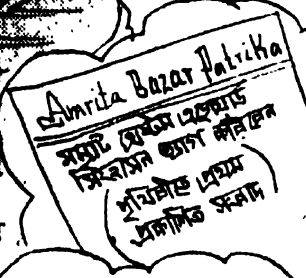 Amrita Bazar Patrika
সম্রাট অষ্টম এডোয়ার্ড
সিংহাসন ত্যাগ করিলেন
(পৃথিবীতে প্রথম
প্রকাশিত সংবাদ)